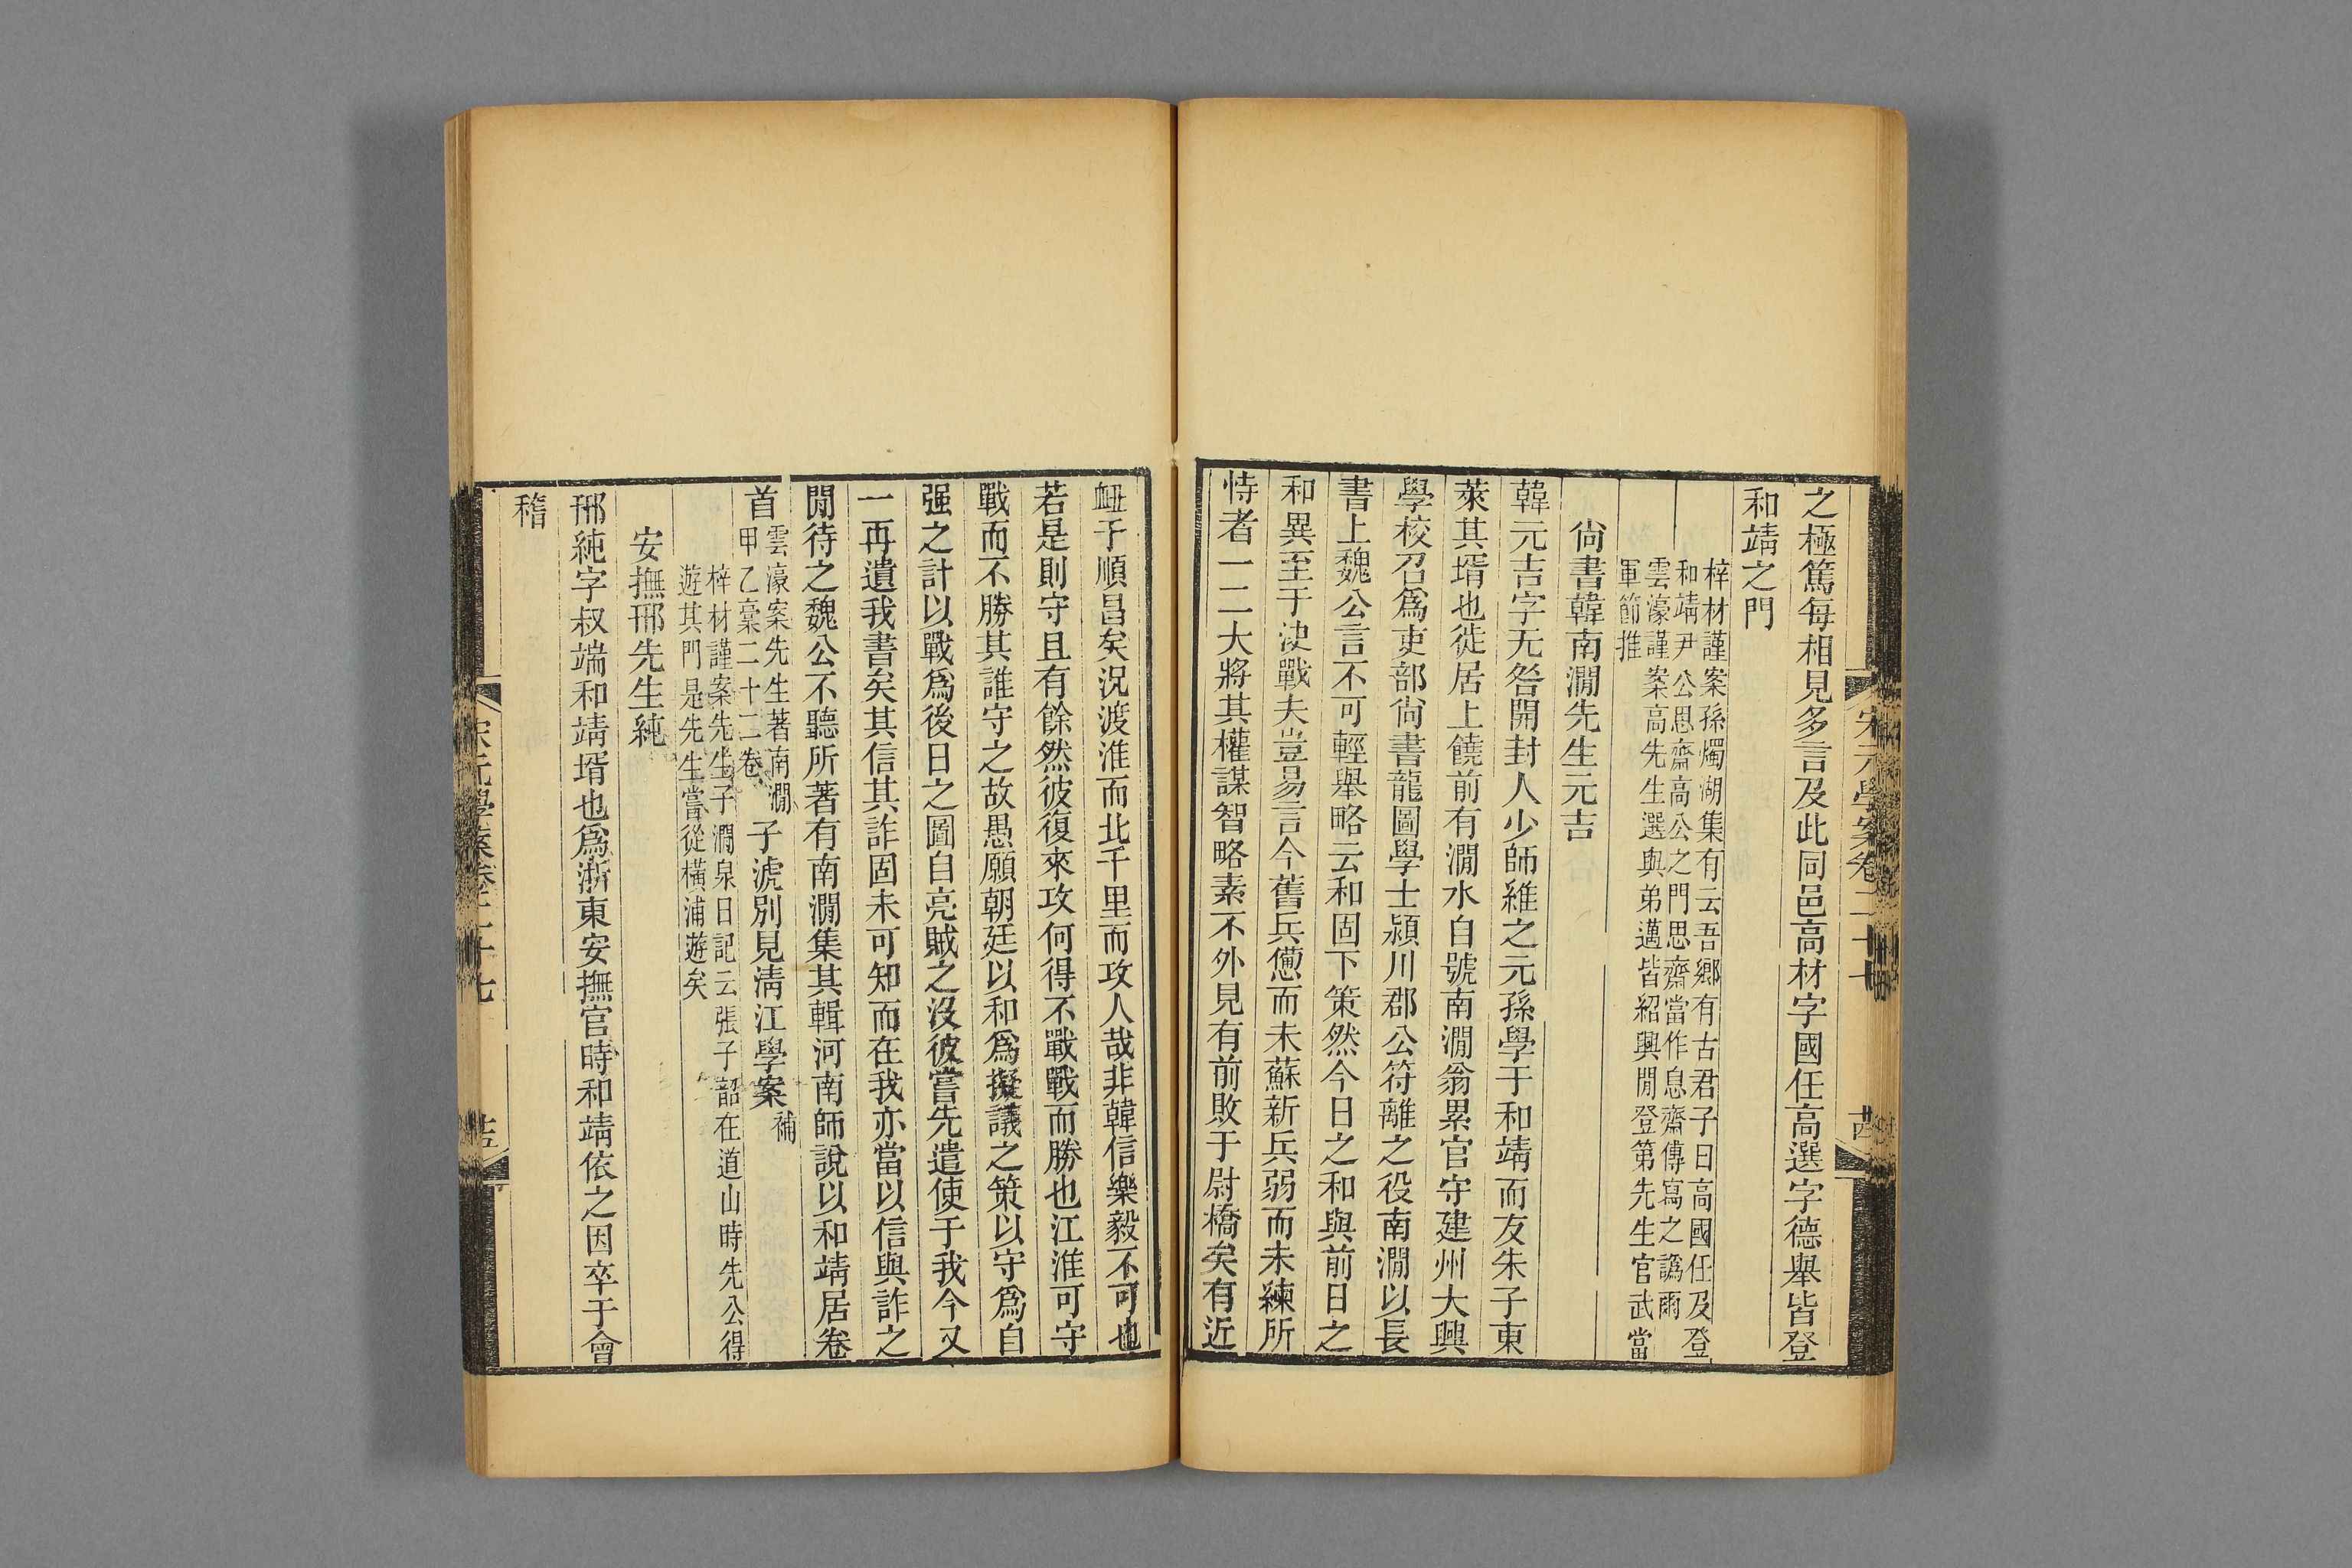 之極篤每相見多言及此同邑高材字國任高選字德舉皆登
和靖之門
梓材謹案孫燭湖集有云吾鄉有古君子曰高國任及登
和靖尹公思齋高公之門思齋當作息齋傳寫之譌爾
雲濠謹案高先生選與弟邁皆紹興閒登第先生官武當
軍節推
尙書韓南澗先生元吉
韓元吉字无咎開封人少師維之元孫學于和靖而友朱子東
萊其壻也徙居上饒前有澗水自號南澗翁累官守建州大興
學校召爲吏部尙書龍圖學士潁川郡公符離之役南澗以長
書上魏公言不可輕舉略云和固下策然今日之和與前日之
和異至于決戰夫豈易言今舊兵憊而未蘇新兵弱而未練所
恃者一二大將其權謀智略素不外見有前敗于尉橋矣有近
衄于順昌矣況渡淮而北千里而攻人哉非韓信樂毅不可也
若是則守且有餘然彼復來攻何得不戰戰而勝也江淮可守
戰而不勝其誰守之故愚願朝廷以和爲擬議之策以守爲自
强之計以戰爲後日之圖自亮賊之沒彼嘗先遣使于我今又
一再遺我書矣其信其詐固未可知而在我亦當以信與詐之
閒待之魏公不聽所著有南澗集其輯河南師說以和靖居卷
首
雲濠案先生著南澗
甲乙稾二十二卷
子淲別見淸江學案
補
梓材謹案先生子澗泉日記云張子韶在道山時先公得
遊其門是先生嘗從橫浦遊矣
安撫邢先生純
邢純字叔端和靖壻也爲浙東安撫官時和靖依之因卒于會
稽
宋元學案卷二十七